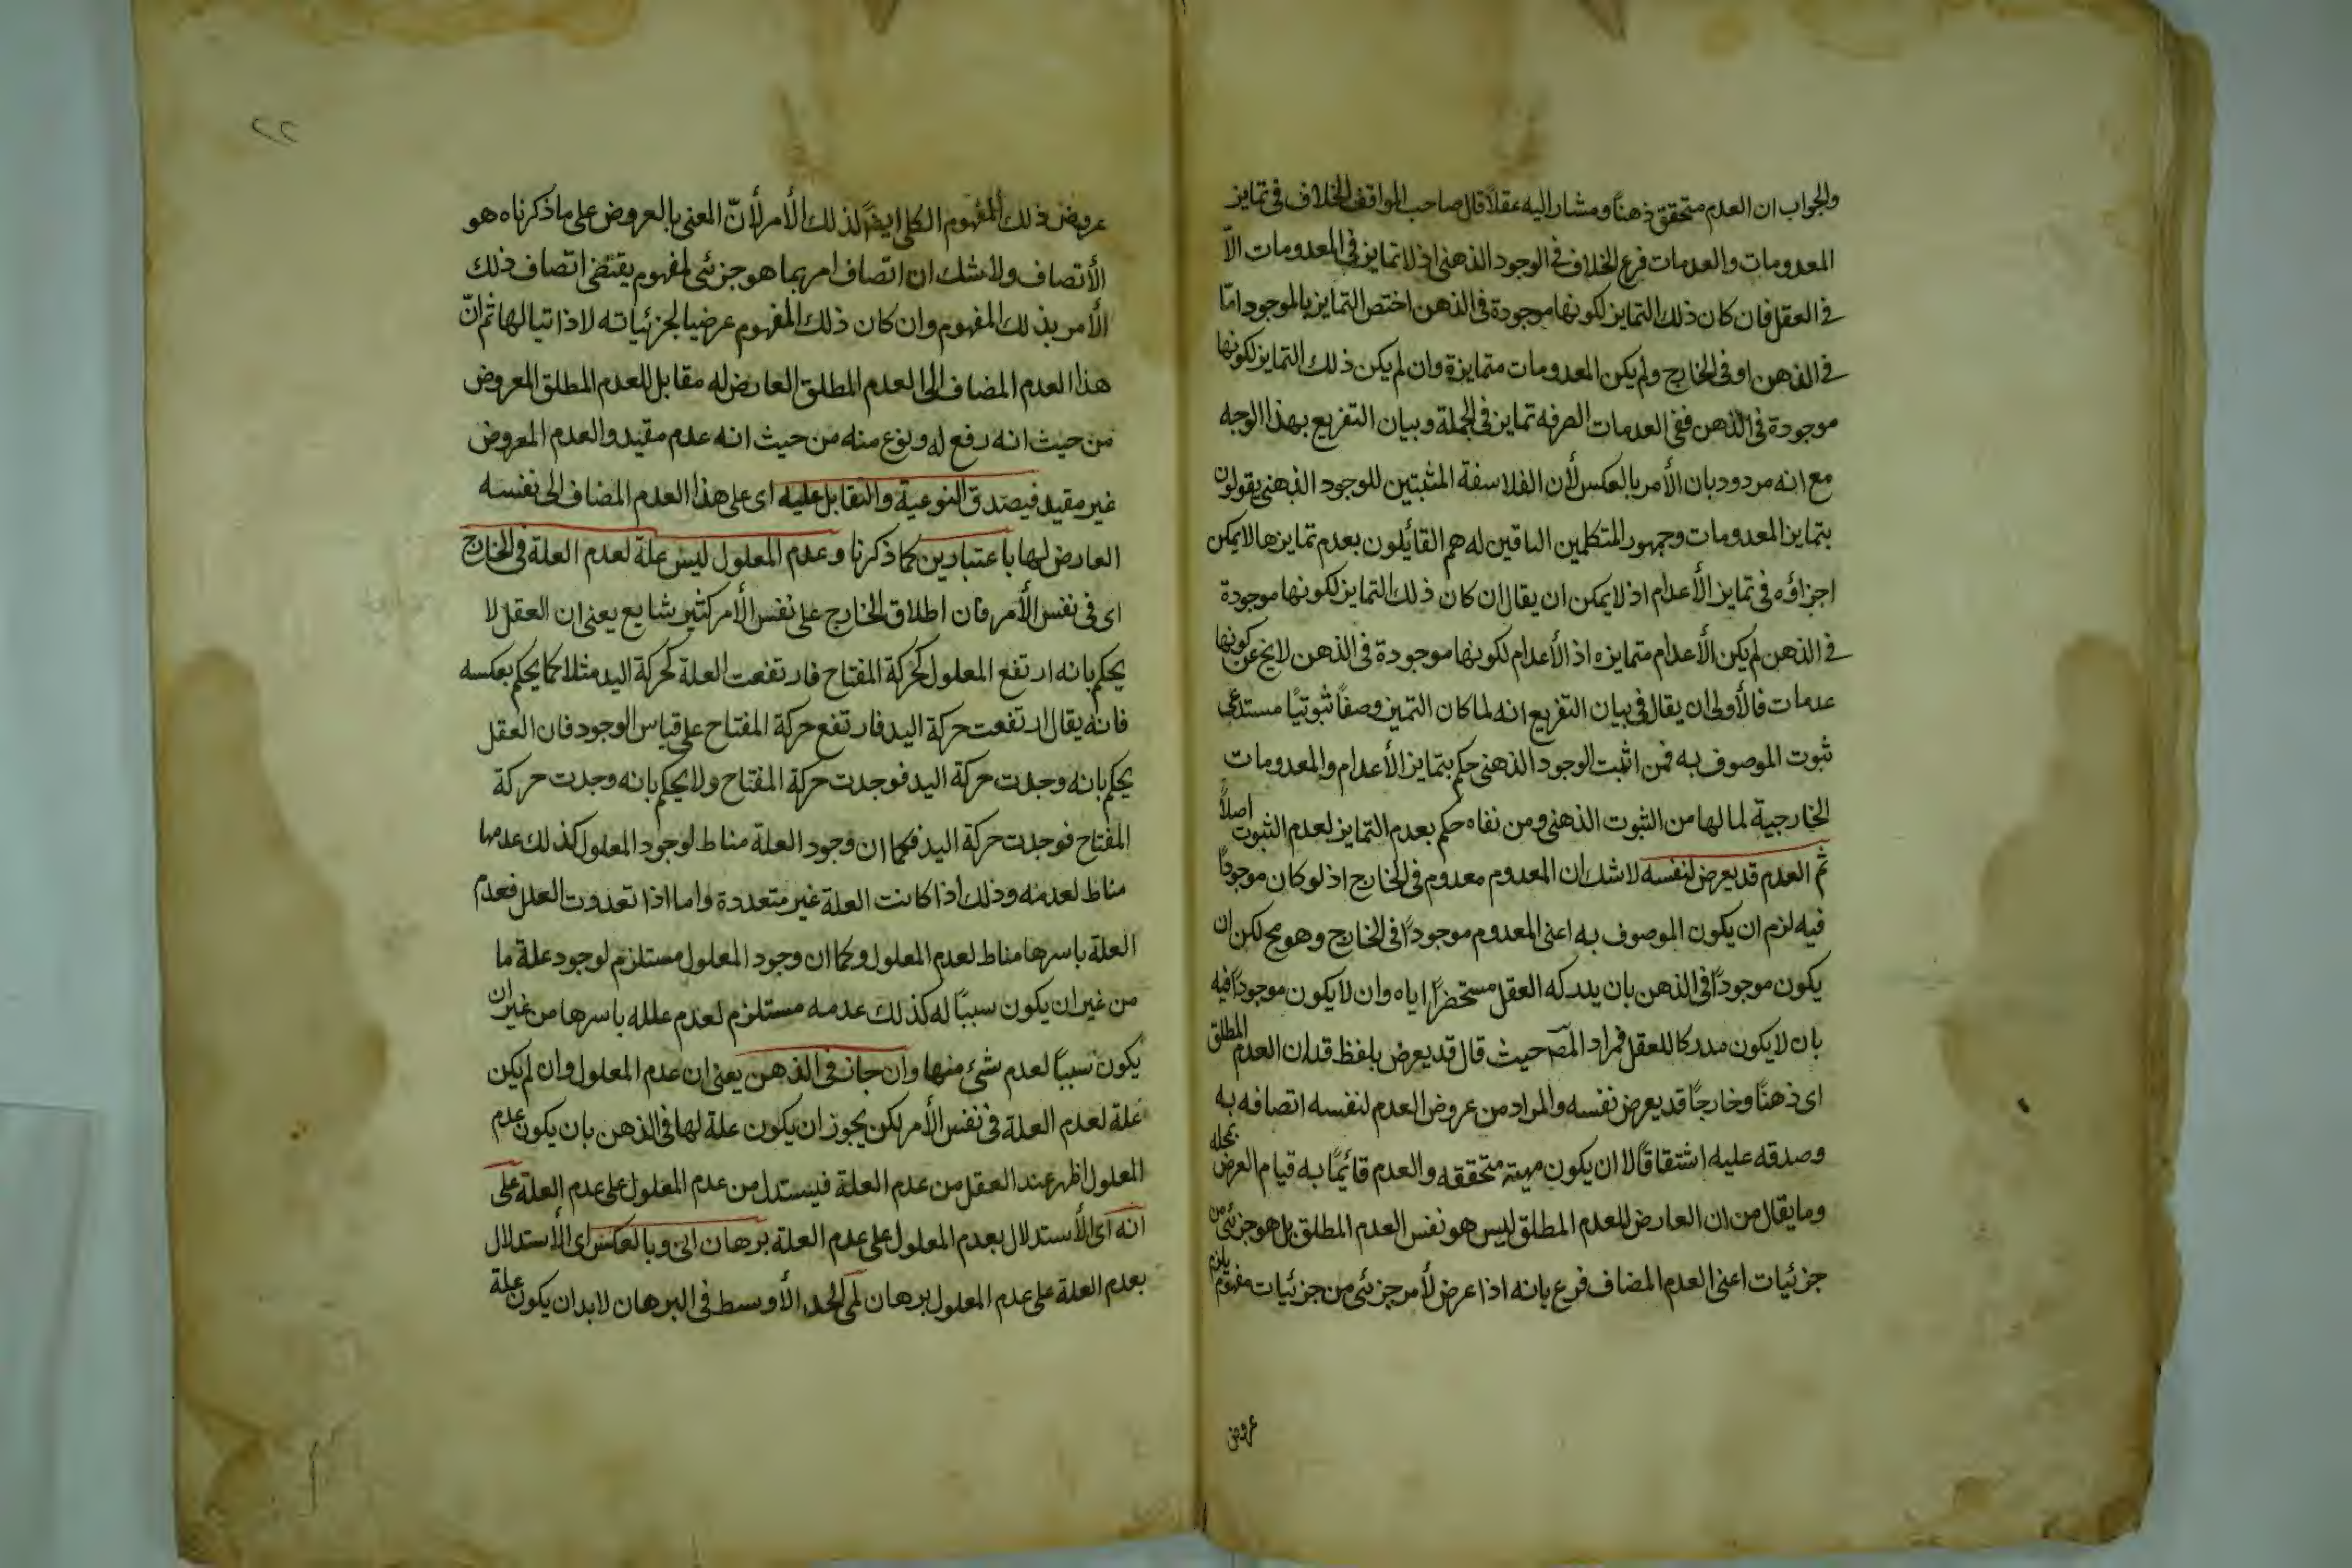 والجواب ان العدم متحقق ذهناً ومشار اليه عقلاً قال صاحب المواقف الخلاف فى تمايز
المعدومات والعدمات فرع الخلاف فى الوجود الذهنى اذ لا تمايز فى المعدومات الاّ
فى العقل فان كان ذلك التمايز لكونها موجودة فى الذهن اختص التمايز بالموجود امّا
فى الذهن او فى الخارج ولم يكن المعدومات متمايزة وان لم يكن ذلك التمايز لكونها
موجودة فى الذهن ففى العدمات الصرفه تمايز فى الجملة وبيان التفريع بهذا الوجه
مع انه مردود بان الأمر بالعكس لأن الفلاسفة المثبتين للوجود الذهنى يقولون
بتمايز المعدومات وجمهور المتكلمين النافين له هم القائلون بعدم تمايزها لا يمكن
اجراؤه فى تمايز الأعدام اذ لا يمكن ان يقال ان كان ذلك التمايز لكونها موجودة
فى الذهن لم يكن الأعدام متمايزه اذ الأعدام لكونها موجودة فى الذهن لا يخ عن كونها
عدمات فالأولى ان يقال فى بيان التفريع انه لما كان التميز وصفاً ثبوتيًا مستدعى
ثبوت الموصوف به فمن اثبت الوجود الذهنى حكم بتمايز الأعدام والمعدومات
الخارجية لما لها من الثبوت الذهنى ومن نفاه حكم بعدم التمايز لعدم الثبوت اصلاً
ثم العدم قد يعرض لنفسه لا شك ان المعدوم معدوم فى الخارج اذ لو كان موجوداً
فيه لزم ان يكون الموصوف به اعنى المعدوم موجوداً فى الخارج وهو مح لكن ان
يكون موجوداً فى الذهن بان يدركه العقل مستحضراً اياه وان لا يكون موجوداً فيه
بان لا يكون مدركا للعقل فمراد المص حيث قال قد يعرض بلفظ قد ان العدم المطلق
اى ذهنًا وخارجًا قد يعرض نفسه والمراد من عروض العدم لنفسه اتصافه به
وصدقه عليه اشتقاقًا لا ان يكون مهية متحققه والعدم قائيمًا به قيام العرض بمحله
وما يقال من ان العارض للعدم المطلق ليس هو نفس العدم المطلق بل هو جزئى من
جزئيات اعنى العدم المضاف فرع بانه اذا عرض لأمر جزئى من جزئيات مفهوم يلزم
عروض
٢٢
عروض ذلك المفهوم الكلى ايضًا لذلك الأمر لأنّ المعنى بالعروض على ما ذكرناه هو
الأتصاف ولا شك ان اتصاف امر بما هو جزئى لمفهوم يقتضى اتصاف ذلك
الأمر بذلك المفهوم وان كان ذلك المفهوم عرضيا لجزئياته لا ذاتيا لها ثم انّ
هذا العدم المضاف الى العدم المطلق العارض له مقابل للعدم المطلق المعروض
من حيث انه رفع له ونوع منه من حيث انه عدم مقيد والعدم المعروض
غير مقيد فيصدق النوعية والتقابل عليه اى على هذا العدم المضاف الى نفسه
العارض لها باعتبارين كما ذكرنا وعدم المعلول ليس علة لعدم العلة فى الخارج
اى فى نفس الأمر فان اطلاق الخارج على نفس الأمر كثير شايع يعنى ان العقل لا
يحكم بانه ارتفع المعلول كحركة المفتاح فارتفعت العلة كحركة اليد مثلا كما يحكم بعكسه
فانه يقال ارتفعت حركة اليد فارتفع حركة المفتاح على قياس الوجود فان العقل
يحكم بانه وجدت حركة اليد فوجدت حركة المفتاح ولا يحكم بانه وجدت حركة
المفتاح فوجدت حركة اليد فكما ان وجود العلة مناط لوجود المعلول كذلك عدمها
مناط لعدمه وذلك اذا كانت العلة غير متعددة واما اذا تعددت العلل فعدم
العلة باسرها مناط لعدم المعلول وكما ان وجود المعلول مستلزم لوجود علة ما
من غير ان يكون سببًا له كذلك عدمه مستلزم لعدم علله باسرها من غير ان
يكون سببًا لعدم شئ منها وان جاز فى الذهن يعنى ان عدم المعلول وان لم يكن
علة لعدم العلة فى نفس الأمر لكن يجوز ان يكون علة لها فى الذهن بان يكون عدم
المعلول اظهر عند العقل من عدم العلة فيستدل من عدم المعلول على عدم العلة على
انه اى الأستدلال بعدم المعلول على عدم العلة برهان انى وبالعكس اى الأستدلال
بعدم العلة على عدم المعلول برهان لمى الحد الأوسط فى البرهان لابد ان يكون علة